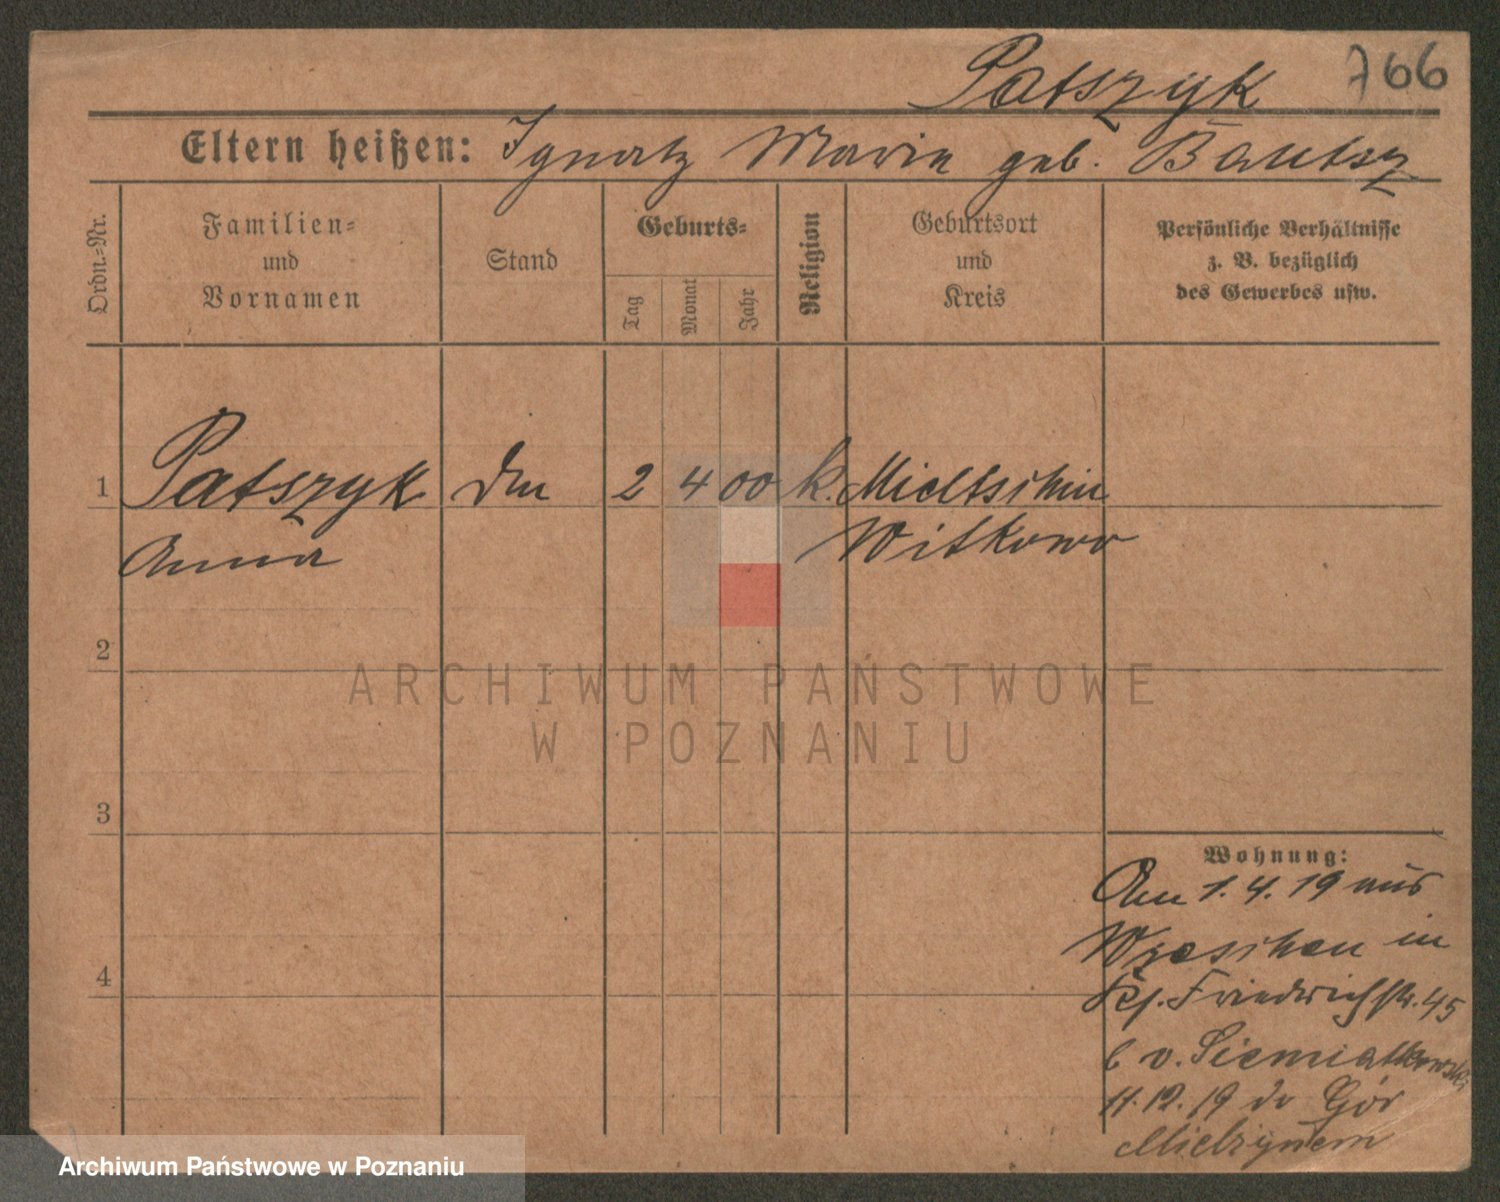 Patszyk 766
Eltern heißen: Ignatz Marie geb. Bautsz
Ordn.=Nr.
Familien=
und
Vornamen
Stand
Geburts=
Tag
Monat
Jahr
Religion
Geburtsort
und
Kreis
Persönliche Verhältnisse
z. B. bezüglich
des Gewerbes usw.
1 Patszyk 2 4 00 k. Mieltschin
Anna Witkowo
2
ARCHIWUM PAŃSTWOWE
W POZNANIU
3
4
Wohnung:
Am 1.4.19 aus
Wreschen in
Friedrichstr. 45
b v. Siemiatkowski
11.12.19 do Gór
Mielzynem
Archiwum Państwowe w Poznaniu